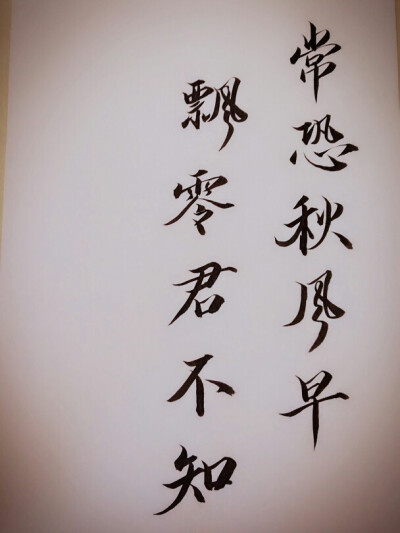 常恐秋风早
飘零君不知